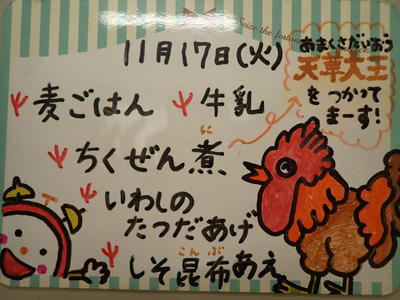 Seize the fortune
11月17日(火)
あまくさだいおう
天草大王
を つかって
まーす!
麦ごはん 牛乳
に
ちくぜん煮
いわしの
たつだあげ
こんぶ
しそ昆布あえ